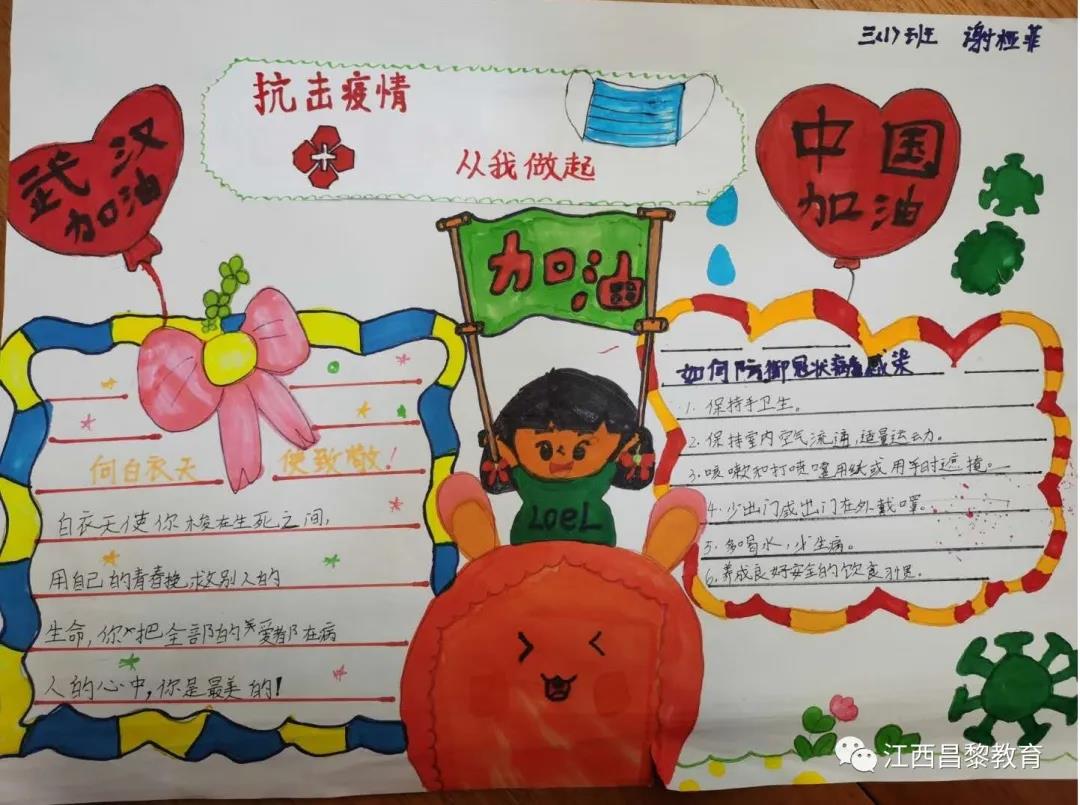 三(1)班 谢桠菲
抗击疫情
从我做起
武汉
加油
中国
加油
加油
LOeL
向白衣天使致敬!
白衣天使你梭在生死之间,
用自己的青春挽救别人的
生命,你把全部的关爱都在病
人的心中,你是最美的!
如何防御冠状病毒感染
1. 保持手卫生。
2. 保持室内空气流通,适量运动。
3. 咳嗽和打喷嚏用纸或用手肘遮掩。
4. 少出门或出门在外戴罩。
5. 多喝水,少生病。
6. 养成良好安全的饮食习惯。
江西昌黎教育